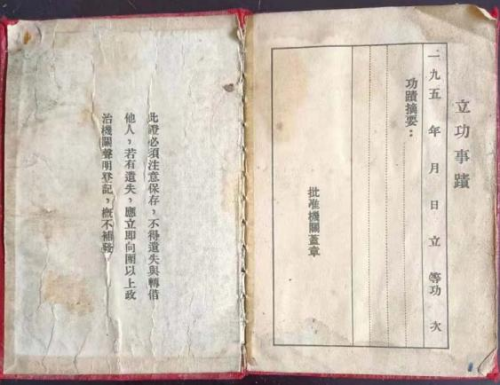 立功事蹟
一九五 年 月 日 立 等功 次
功蹟摘要：
批准機關蓋章
此證必須注意保存，不得遺失與轉借
他人，若有遺失，應立即向團以上政
治機關聲明登記，概不補發